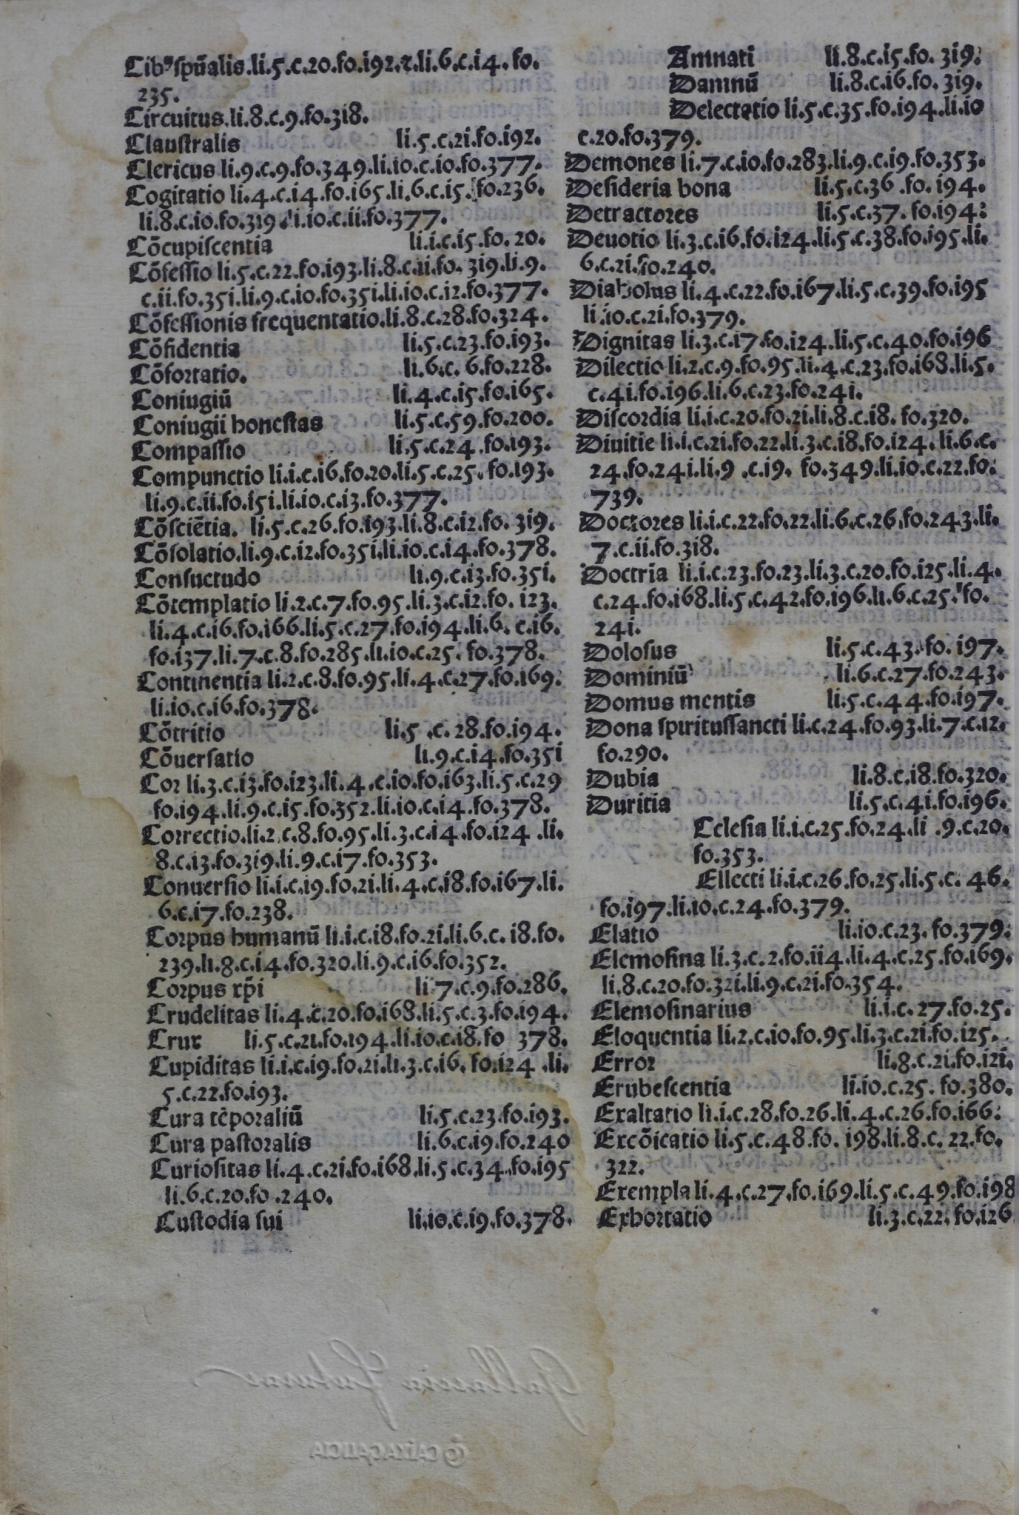 Cibꝰ spũalis.li.5.c.20.fo.i92.⁊.li.6.c.i4.fo.
235.
Circuitus.li.8.c.9.fo.3i8.
Claustralis li.5.c.2i.fo.i92.
Clericus li.9.c.9.fo.349.li.io.c.io.fo.377.
Cogitatio li.4.c.i4.fo.i65.li.6.c.i5.fo.236.
li.8.c.io.fo.3i9.li.io.c.ii.fo.377.
Cõcupiscentia li.i.c.i5.fo.20.
Cõfessio li.5.c.22.fo.i93.li.8.c.ii.fo.3i9.li.9.
c.ii.fo.35i.li.9.c.io.fo.35i.li.io.c.i2.fo.377.
Cõfessionis frequentatio.li.8.c.28.fo.324.
Cõfidentia li.5.c.23.fo.i93.
Cõfortatio. li.6.c.6.fo.228.
Coniugiũ li.4.c.i5.fo.i65.
Coniugii honestas li.5.c.59.fo.200.
Compassio li.5.c.24.fo.i93.
Compunctio li.i.c.i6.fo.20.li.5.c.25.fo.i93.
li.9.c.ii.fo.i5i.li.io.c.i3.fo.377.
Cõsciẽtia. li.5.c.26.fo.i93.li.8.c.i2.fo.3i9.
Cõsolatio.li.9.c.i2.fo.35i.li.io.c.i4.fo.378.
Consuetudo li.9.c.i3.fo.35i.
Cõtemplatio li.2.c.7.fo.95.li.3.c.i2.fo.i23.
li.4.c.i6.fo.i66.li.5.c.27.fo.i94.li.6.c.i6.
fo.i37.li.7.c.8.fo.285.li.io.c.25.fo.378.
Continentia li.2.c.8.fo.95.li.4.c.27.fo.i69.
li.io.c.i6.fo.378.
Cõtritio li.5.c.28.fo.i94.
Cõuersatio li.9.c.i4.fo.35i
Cor li.3.c.i3.fo.i23.li.4.c.io.fo.i63.li.5.c.29
fo.i94.li.9.c.i5.fo.352.li.io.c.i4.fo.378.
Correctio.li.2.c.8.fo.95.li.3.c.i4.fo.i24.li.
8.c.i3.fo.3i9.li.9.c.i7.fo.353.
Conuersio li.i.c.i9.fo.2i.li.4.c.i8.fo.i67.li.
6.c.i7.fo.238.
Corpus humanũ li.i.c.i8.fo.2i.li.6.c.i8.fo.
239.li.8.c.i4.fo.320.li.9.c.i6.fo.352.
Corpus xp̃i li.7.c.9.fo.286.
Crudelitas li.4.c.20.fo.i68.li.5.c.3.fo.i94.
Crux li.5.c.2i.fo.i94.li.io.c.i8.fo 378.
Cupiditas li.i.c.i9.fo.2i.li.3.c.i6.fo.i24.li.
5.c.22.fo.i93.
Cura tẽporaliũ li.5.c.23.fo.i93.
Cura pastoralis li.6.c.i9.fo.240
Curiositas li.4.c.2i.fo.i68.li.5.c.34.fo.i95
li.6.c.20.fo.240.
Custodia sui li.io.c.i9.fo.378.
Amnati li.8.c.i5.fo.3i9.
Damnũ li.8.c.i6.fo.3i9.
Delectatio li.5.c.35.fo.i94.li.io
c.20.fo.379.
Demones li.7.c.io.fo.283.li.9.c.i9.fo.353.
Desideria bona li.5.c.36.fo.i94.
Detractores li.5.c.37.fo.i94:
Deuotio li.3.c.i6.fo.i24.li.5.c.38.fo.i95.li.
6.c.2i.fo.240.
Diabolus li.4.c.22.fo.i67.li.5.c.39.fo.i95
li.io.c.2i.fo.379.
Dignitas li.3.c.i7.fo.i24.li.5.c.40.fo.i96
Dilectio li.2.c.9.fo.95.li.4.c.23.fo.i68.li.5.
c.4i.fo.i96.li.6.c.23.fo.24i.
Discordia li.i.c.20.fo.2i.li.8.c.i8.fo.320.
Diuitie li.i.c.2i.fo.22.li.3.c.i8.fo.i24.li.6.c.
24.fo.24i.li.9.c.i9.fo.349.li.io.c.22.fo.
739.
Doctores li.i.c.22.fo.22.li.6.c.26.fo.243.li.
7.c.ii.fo.3i8.
Doctria li.i.c.23.fo.23.li.3.c.20.fo.i25.li.4.
c.24.fo.i68.li.5.c.42.fo.i96.li.6.c.25.fo.
24i.
Dolosus li.5.c.43.fo.i97.
Dominiũ li.6.c.27.fo.243.
Domus mentis li.5.c.44.fo.i97.
Dona spiritussancti li.c.24.fo.93.li.7.c.i2.
fo.290.
Dubia li.8.c.i8.fo.320.
Duritia li.5.c.4i.fo.i96.
Cclesia li.i.c.25.fo.24.li.9.c.20.
fo.353.
Ellecti li.i.c.26.fo.25.li.5.c.46.
fo.i97.li.io.c.24.fo.379.
Elatio li.io.c.23.fo.379.
Elemosina li.3.c.2.fo.ii4.li.4.c.25.fo.i69.
li.8.c.20.fo.32i.li.9.c.2i.fo.354.
Elemosinarius li.i.c.27.fo.25.
Eloquentia li.2.c.io.fo.95.li.3.c.2i.fo.i25.
Error li.8.c.2i.fo.i2i.
Erubescentia li.io.c.25.fo.380.
Exaltatio li.i.c.28.fo.26.li.4.c.26.fo.i66.
Excõicatio li.5.c.48.fo.i98.li.8.c.22.fo.
322.
Exempla li.4.c.27.fo.i69.li.5.c.49.fo.i98
Exhortatio li.3.c.22.fo.i26
Gallaecia Futurae
CAIXAGALICIA